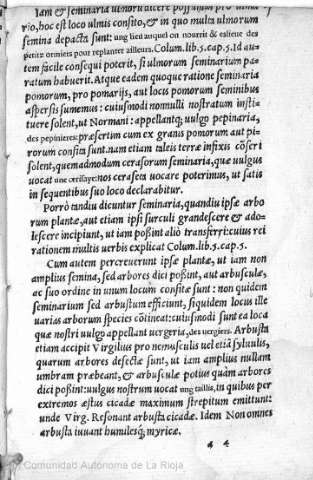 iam & seminaria ulmoru dicere possumus pro ulma
rio, hoc est loco ulmis consito, & in quo multa ulmorum
semina depacta sunt: ung lieu auquel on nourrit & esleue des
petits ormiers pour replanter ailleurs. Colum. lib. 5. cap. 5. Id au-
tem facile consequi poterit, si ulmorum seminarium pa-
ratum habuerit. Atque eadem quoque ratione seminaria
pomorum, pro pomarijs, aut locus pomorum seminibus
aspersis sumemus: cuiusmodi nonnulli nostratum insti-
tuere solent, ut Normani: appellantq; uulgo pepinaria,
des pepinieres: præsertim cum ex granis pomorum aut pi-
rorum consita sunt. nam etiam taleis terræ infixis cōseri
solent, quemadmodum cerasorum seminaria, quæ uulgus
uocat une cerisaye: nos ceraseta uocare poterimus, ut satis
in sequentibus suo loco declarabitur.
Porrò tandiu dicuntur seminaria, quandiu ipsæ arbo
rum plantæ, aut etiam ipsi surculi grandescere & ado-
lescere incipiunt, ut iam possint aliò transferri: cuius rei
rationem multis uerbis explicat Colum. lib. 5. cap. 5.
Cum autem percreuerunt ipsæ plantæ, ut iam non
amplius semina, sed arbores dici possint, aut arbusculæ,
ac suo ordine in unum locum consitæ sunt: non quidem
seminarium sed arbustum efficiunt, siquidem locus ille
uarias arborum species cōtineat: cuiusmodi sunt ea loca
quæ nostri uulgo appellant uergeria, des uergiers. Arbusta
etiam accipit Virgilius pro nemusculis uel etiā syluulis,
quarum arbores desectæ sunt, ut iam amplius nullam
umbram præbeant, & arbusculæ potius quàm arbores
dici possint: uulgus nostrum uocat ung taillis, in quibus per
extremos æstus cicadæ maximum strepitum emittunt:
unde Virg. Resonant arbusta cicadæ. Idem Non omnes
arbusta iuuant humilesq; myricæ.
a 4
Comunidad Autónoma de La Rioja